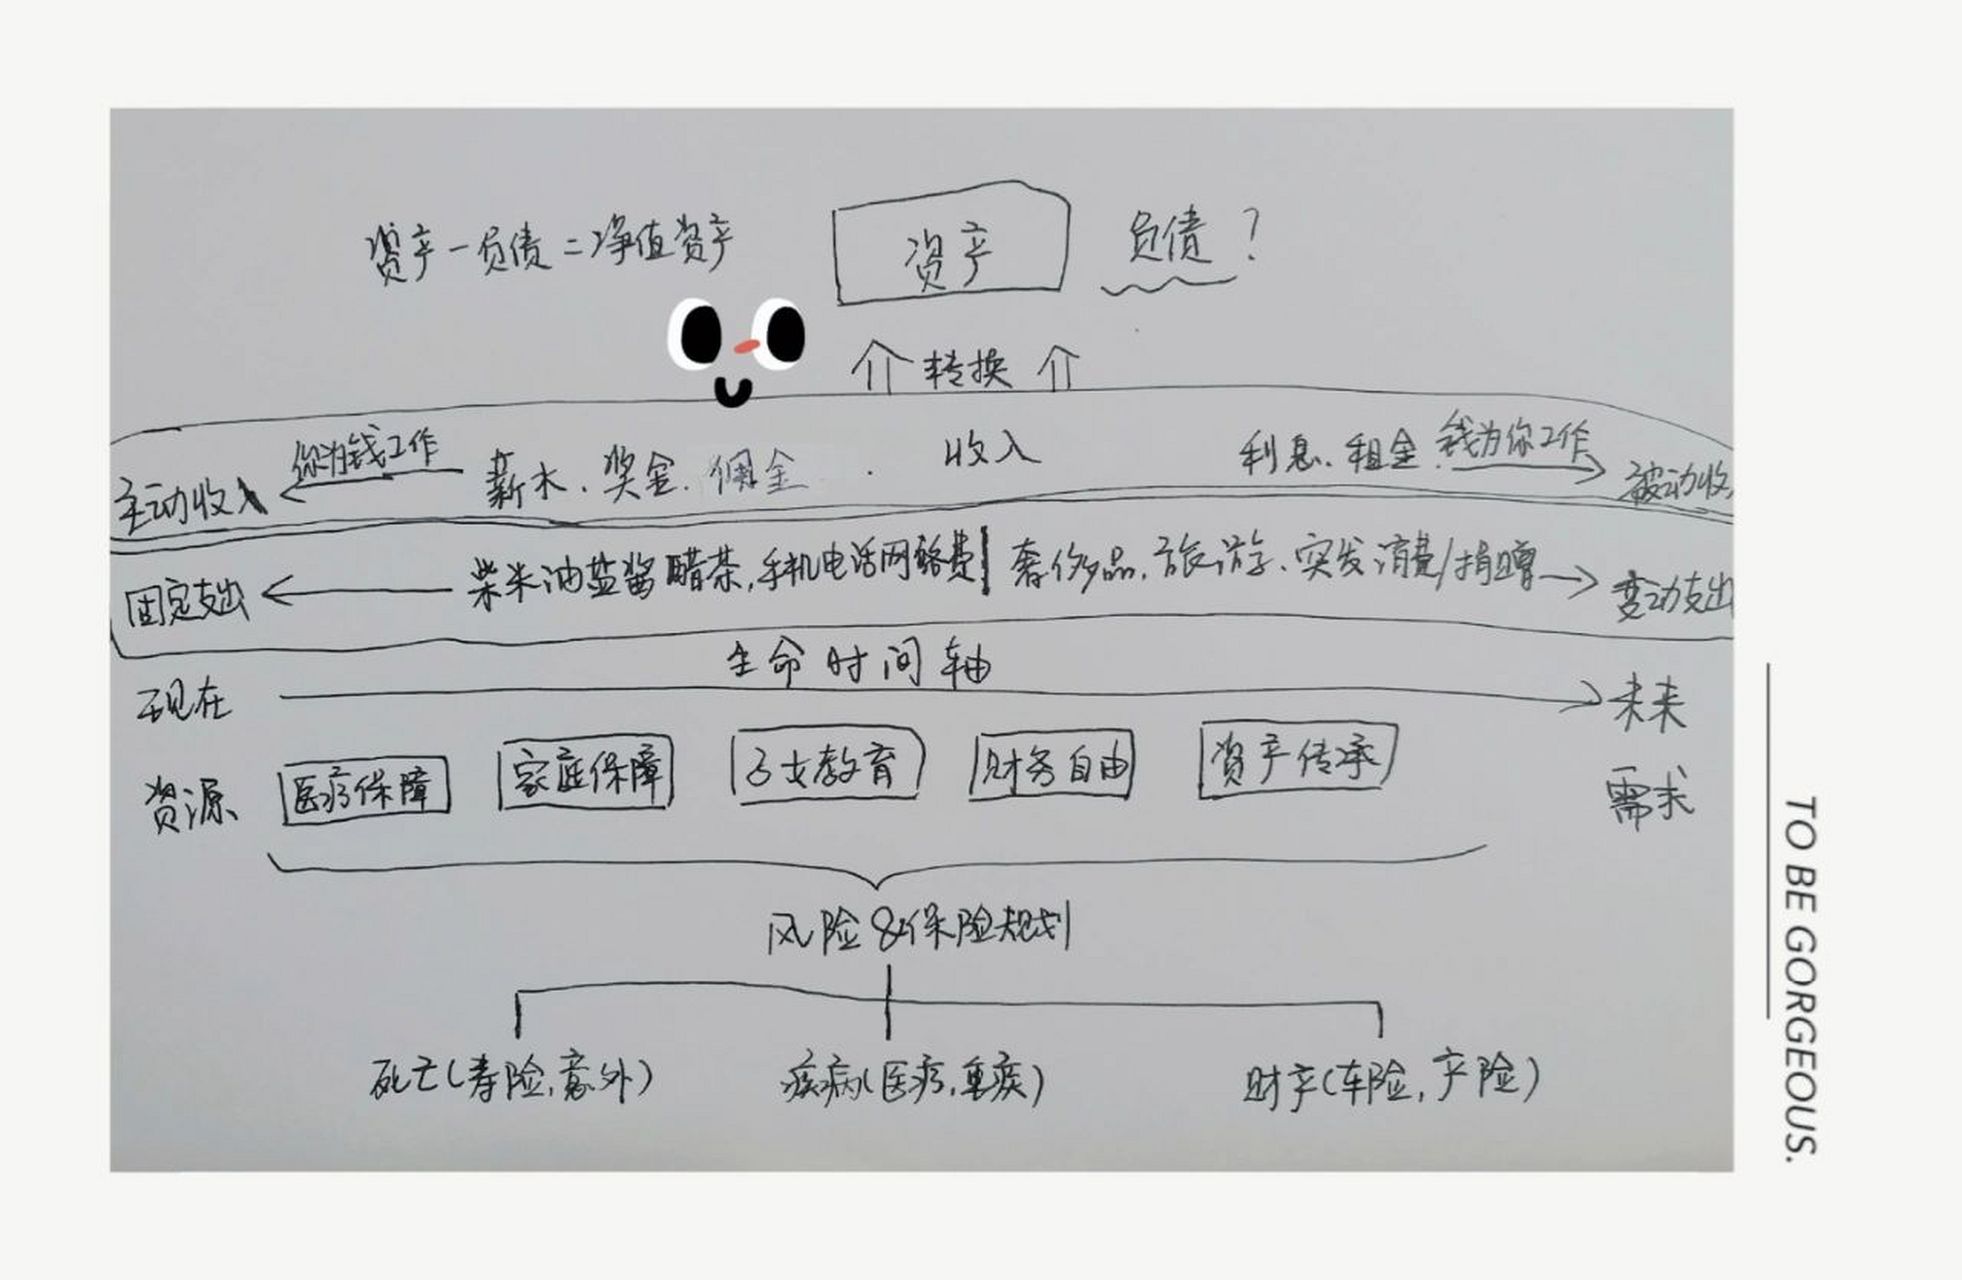 资产-负债=净值资产 资产 负债?
转换
主动收入 你为钱工作 薪水、奖金、佣金 收入 利息、租金 钱为你工作 被动收
固定支出 柴米油盐酱醋茶,手机电话网络费 奢侈品、旅游、突发消费/捐赠 变动支出
生命时间轴
现在 未来
资源 医疗保障 家庭保障 子女教育 财务自由 资产传承 需求
风险&保险规划
死亡(寿险,意外) 疾病(医疗,重疾) 财产(车险,产险)
TO BE GORGEOUS.